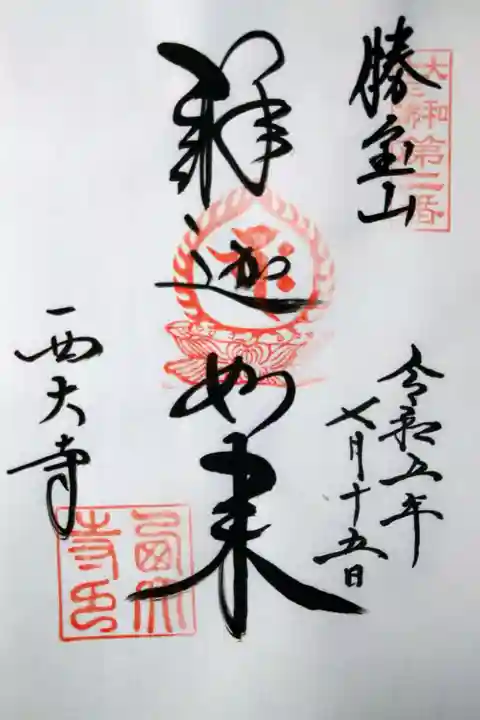 大和
第二番
勝宝山
令和五年
七月十五日
釋迦如来
西大寺